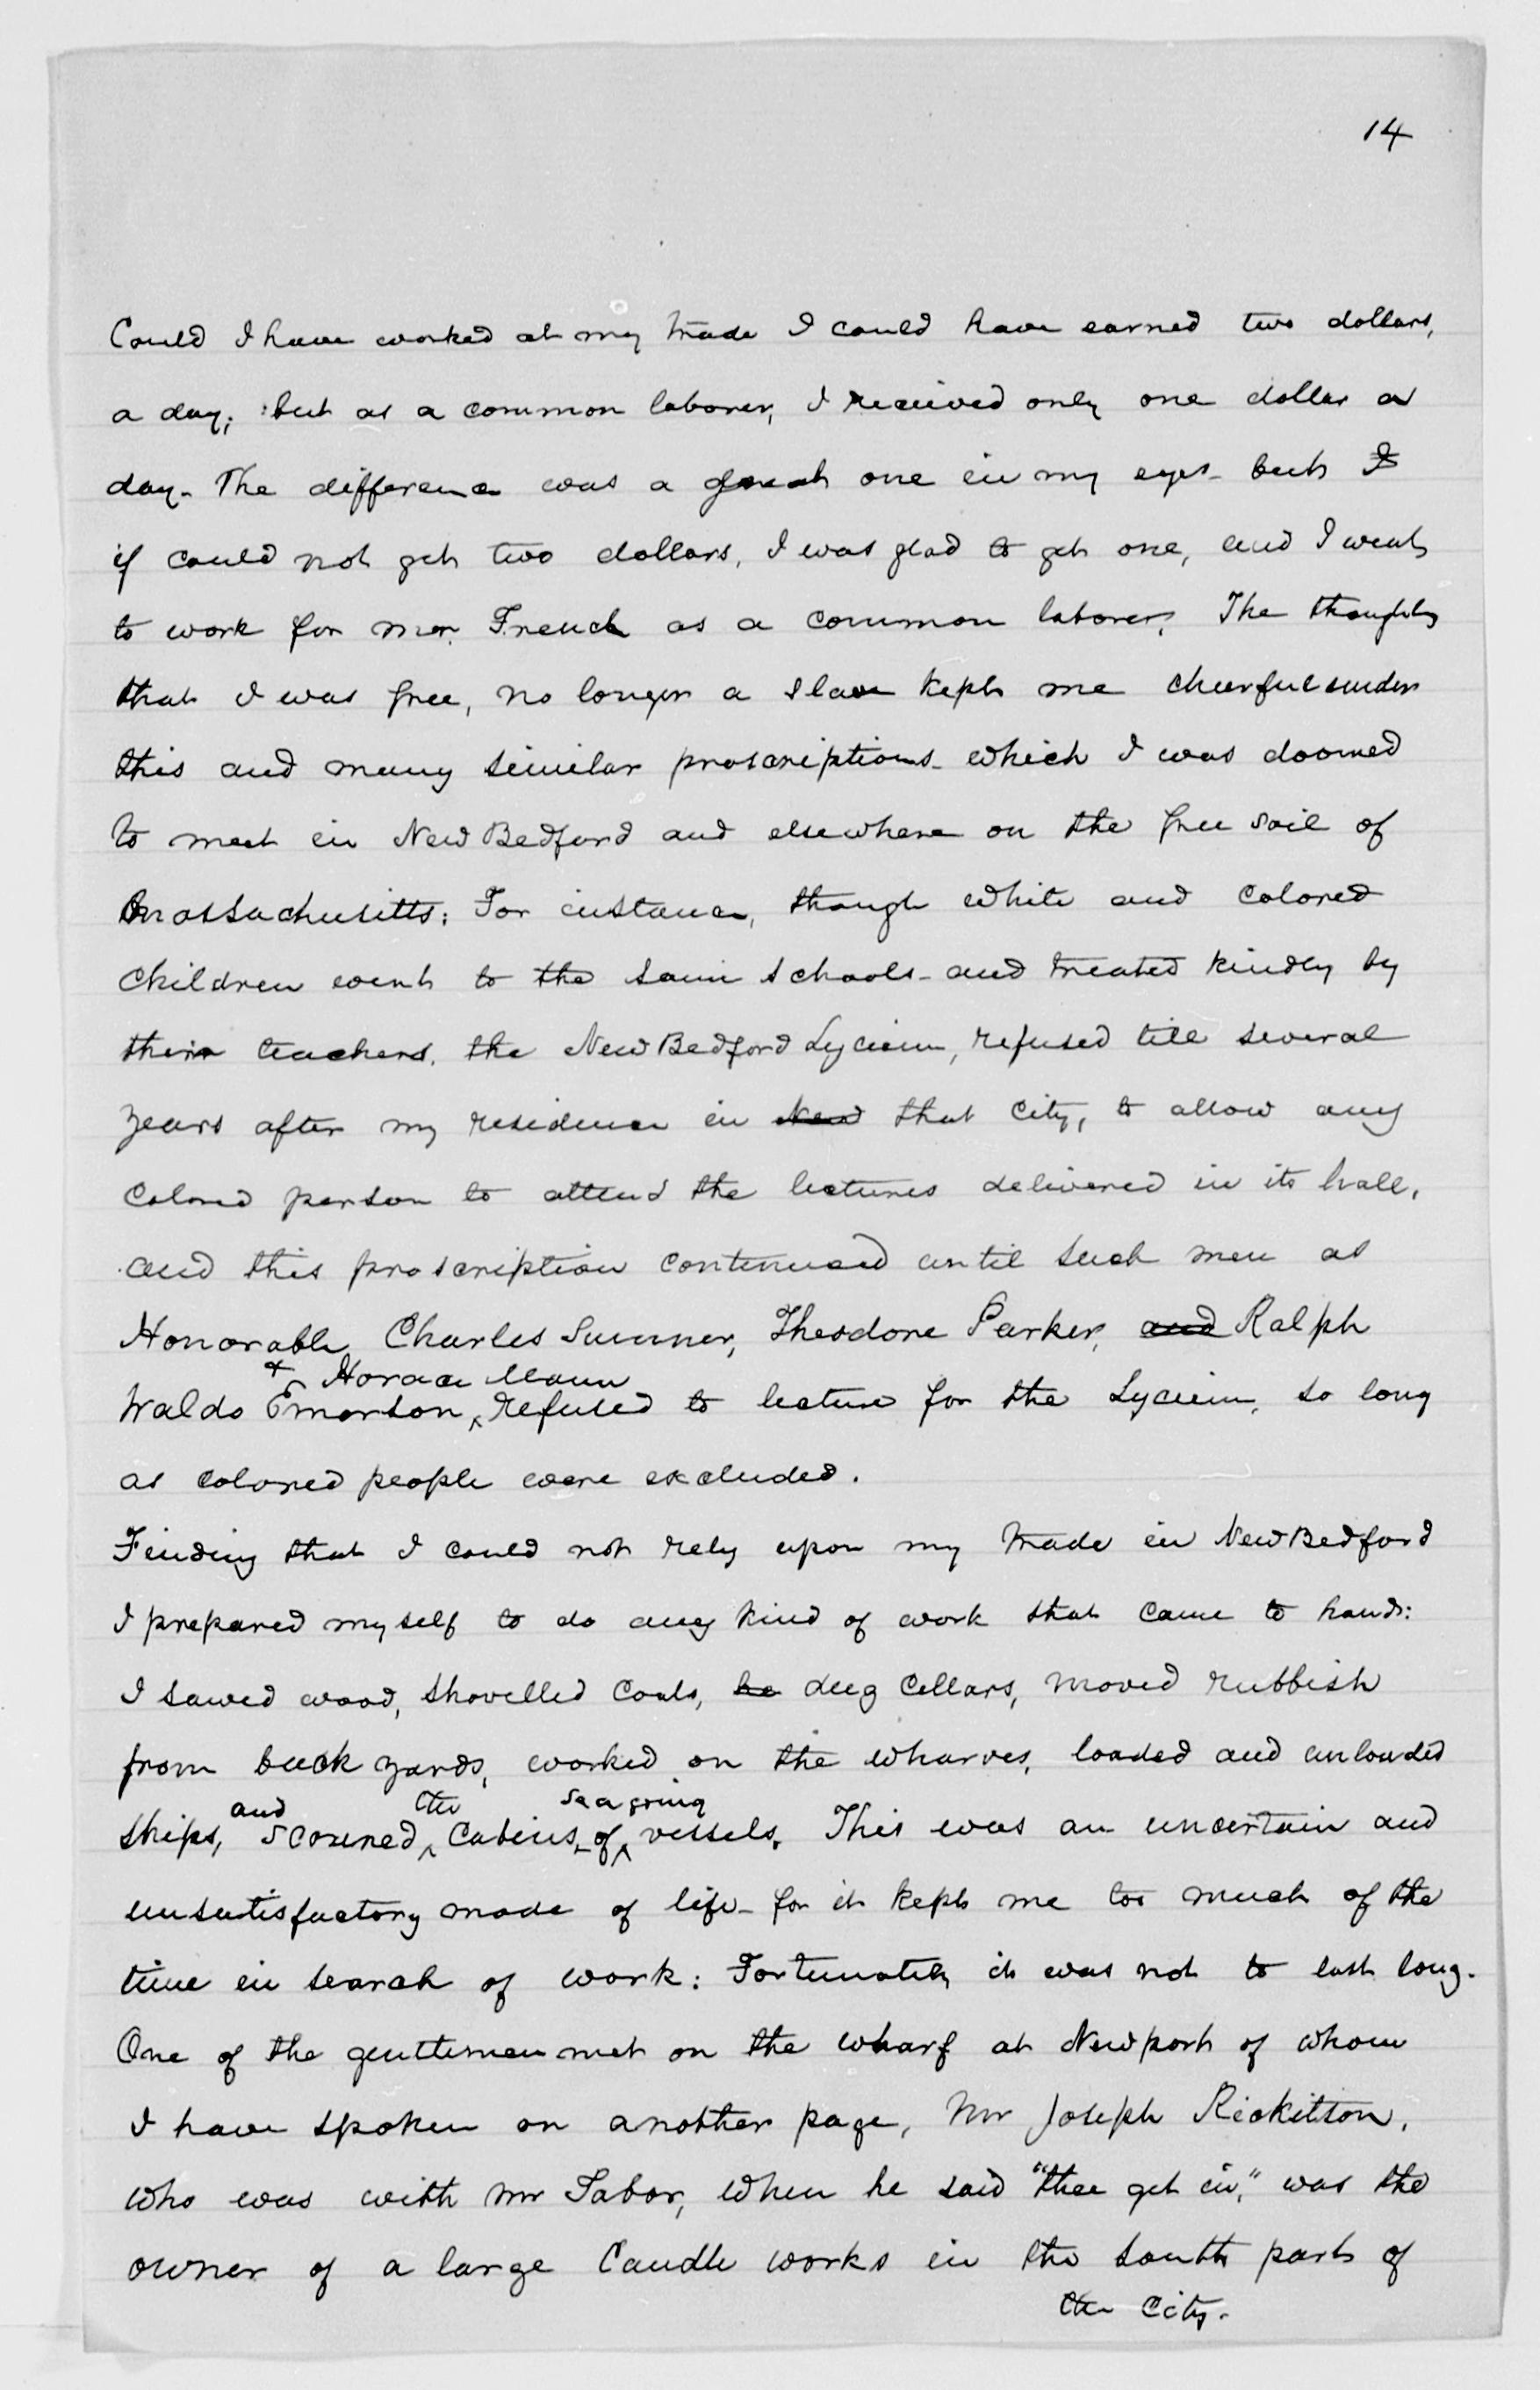 14
Could I have worked at my trade I could have earned two dollars,
a day; but as a common laborer, I received only one dollar a
day. The difference was a great one in my eyes - but I
if could not get two dollars, I was glad to get one, and I went
to work for mr. French as a common laborer. The thought
that I was free, no longer a slave kept me cheerful under
this and many similar proscriptions - which I was doomed
to meet in New Bedford and elsewhere on the free soil of
Massachusetts: For instance, though white and colored
children went to the same schools - and treated kindly by
their teachers, the New Bedford Lyceum, refused till several
years after my residence in New that city, to allow any
colored person to attend the lectures delivered in its hall,
and this proscription continued until such men as
Honorable Charles Sumner, Theodore Parker, and Ralph
& Horace Mann
Waldo Emerson, refused to lecture for the Lyceum, so long
as colored people were excluded.
Finding that I could not rely upon my trade in New Bedford
I prepared myself to do any kind of work that came to hand:
I sawed wood, shovelled coals, he dug cellars, moved rubbish
from back yards, worked on the wharves, loaded and unloaded
and the seagoing
ships, scoured cabins, of vessels. This was an uncertain and
unsatisfactory mode of life - for it kept me too much of the
time in search of work: Fortunately it was not to last long.
One of the gentlemen met on the wharf at Newport of whom
I have spoken on another page, Mr Joseph Ricketson,
who was with Mr Tabor, when he said "thee get in," was the
owner of a large Candle works in the south part of
the City.